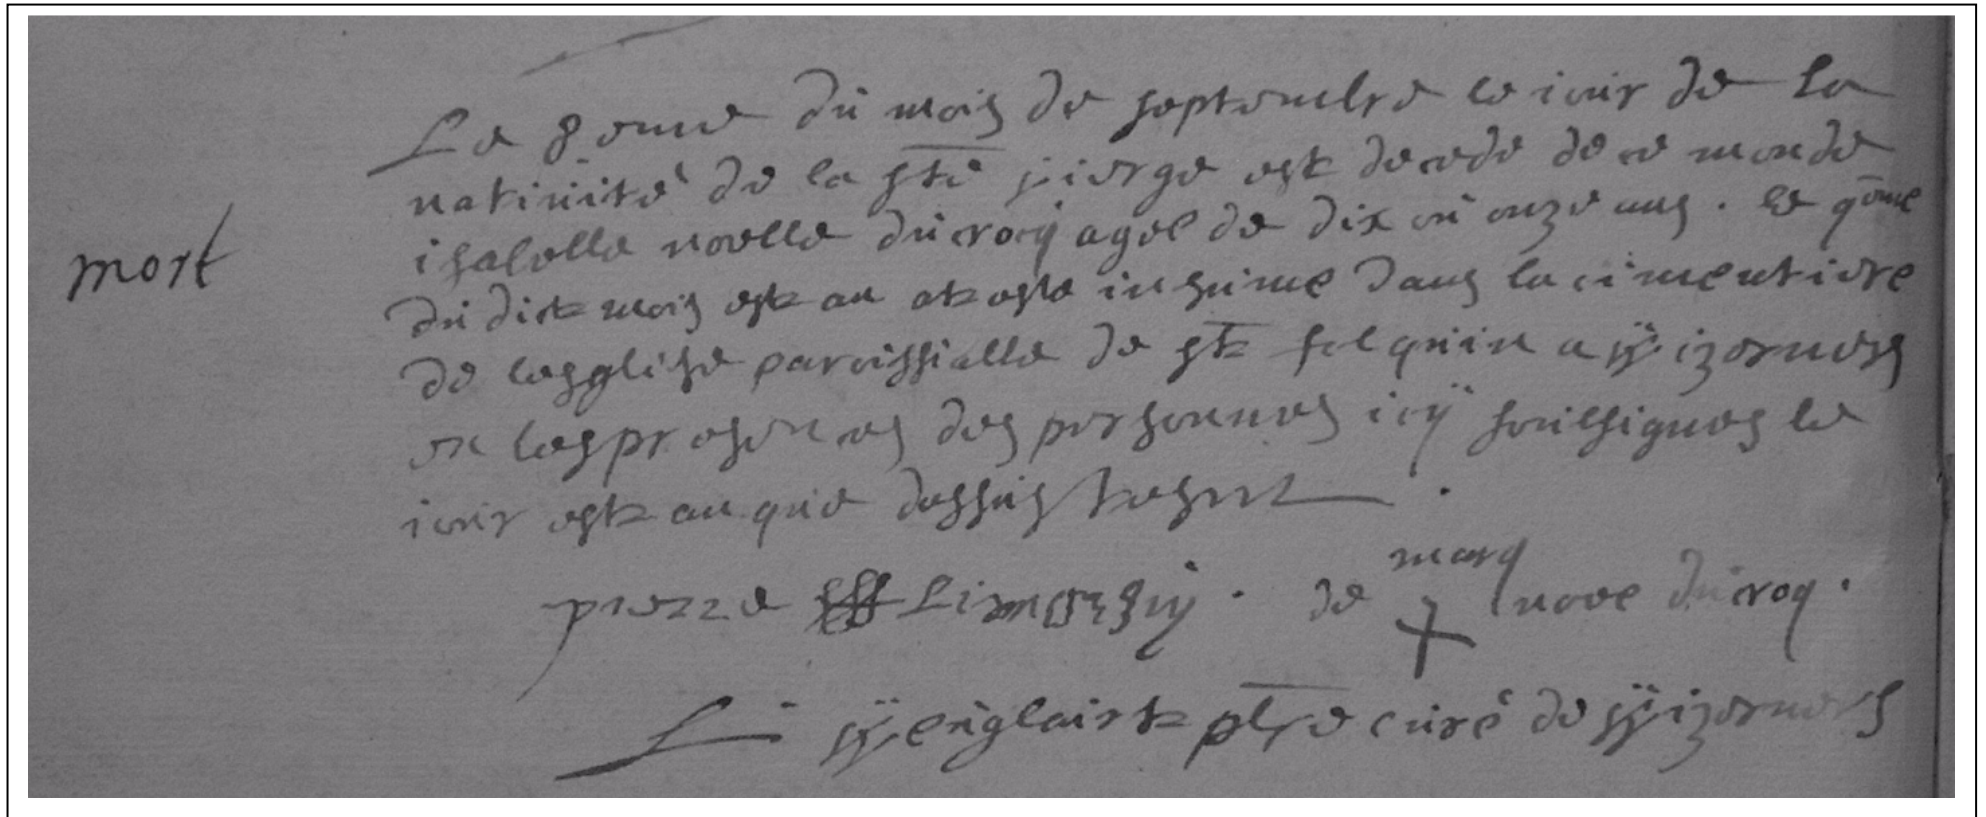 mort
Le 8 eme du mois de septembre le iour de la
natiuité de la ste vierge est decede de ce monde
isabelle noelle du crocq agee de dix ou onze ans . le 9ome
du dict mois est an at este inhume dans la cimentiere
de lesglise paroissialle de st folquin a wizernes
en les presences des personnes icÿ soubsignes le
iour est an que dessus
pierre limo . de marq noee du crocq .
L plre curé de wizernes